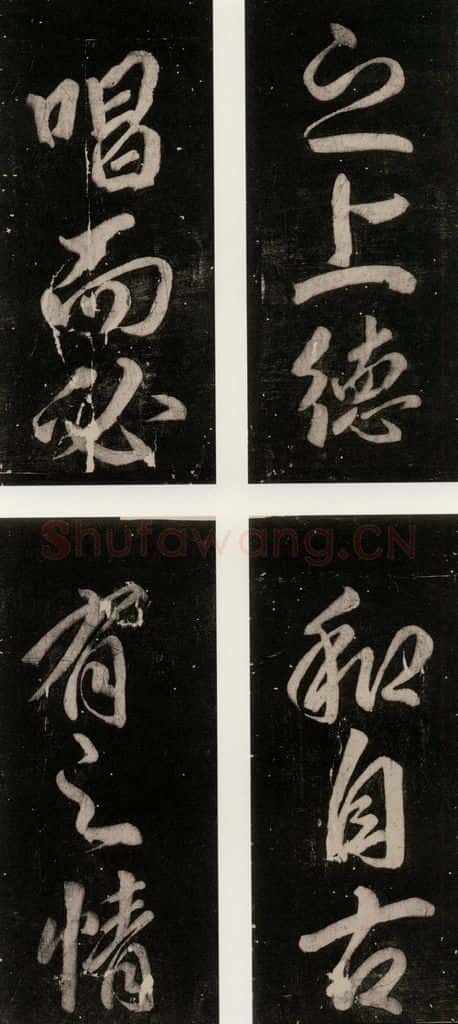 之上德
唱而必
和自古
有之情
Shufawang.CN